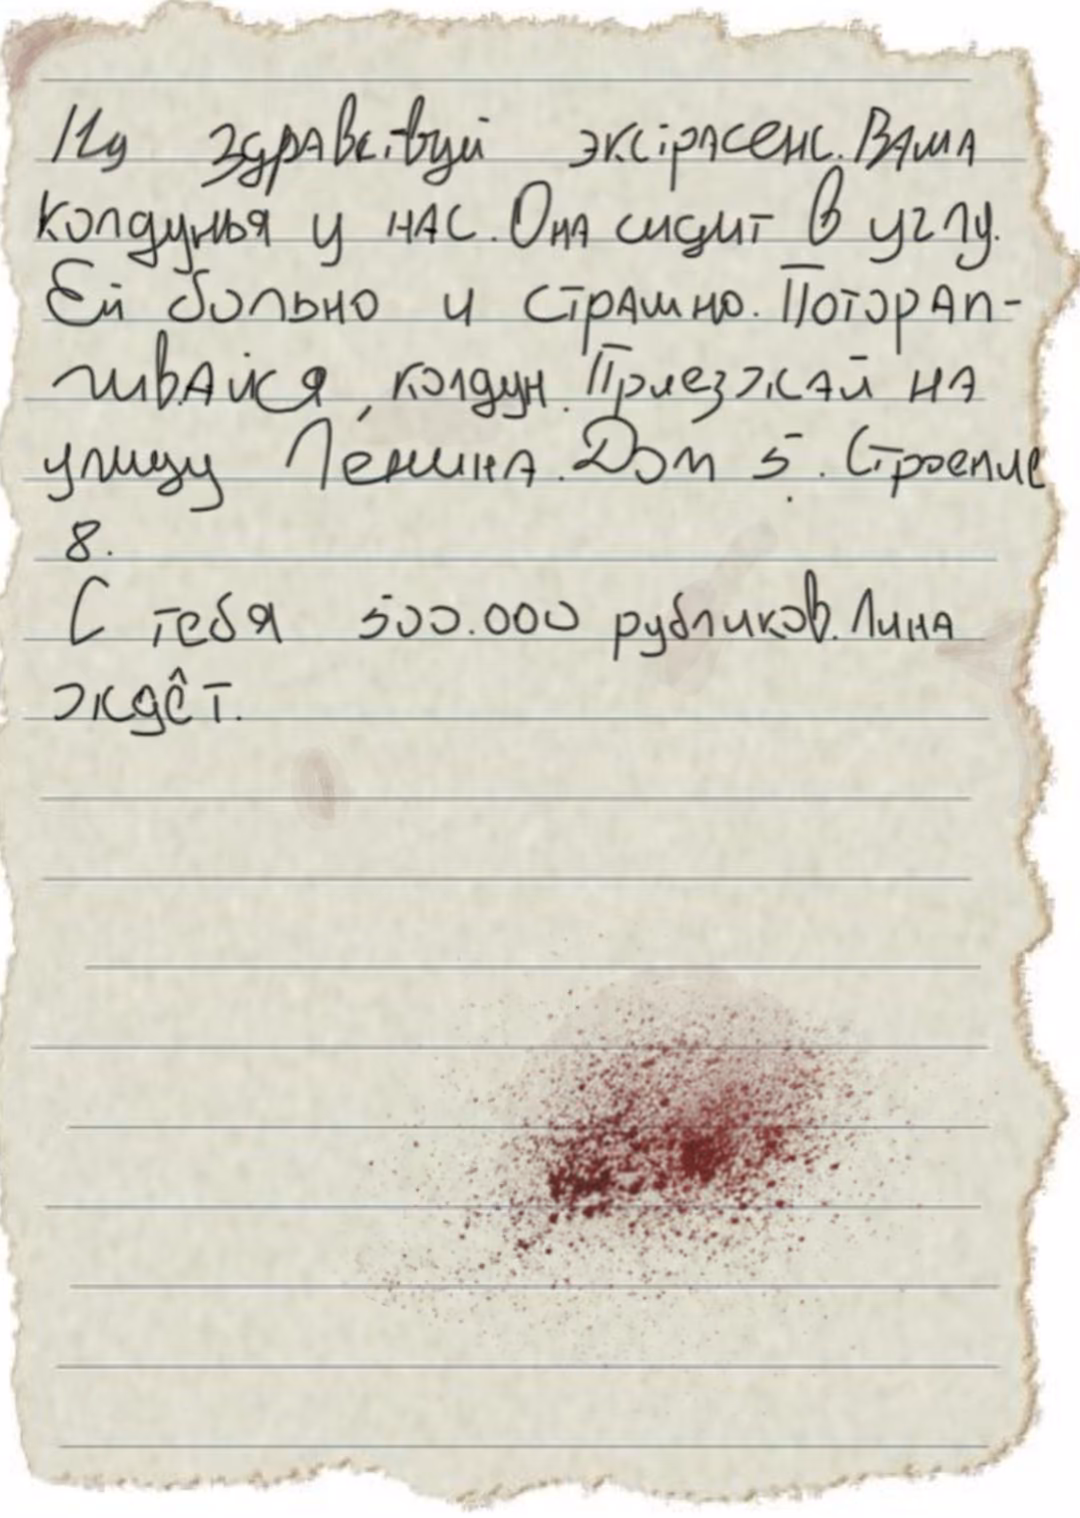 Ну здравствуй экстрасенс. Ваша
колдунья у нас. Она сидит в углу.
Ей больно и страшно. Поторап-
ливайся, колдун. Приезжай на
улицу Ленина. Дом 5. Строение
8.
С тебя 500.000 рубликов. Лина
ждёт.